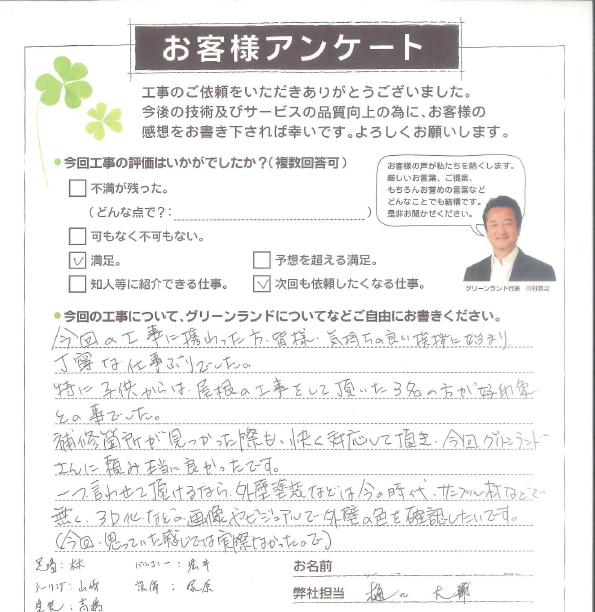 お客様アンケート
工事のご依頼をいただきありがとうございました。
今後の技術及びサービスの品質向上の為に、お客様の
感想をお書き下されば幸いです。よろしくお願いします。
●今回工事の評価はいかがでしたか?(複数回答可)
不満が残った。
(どんな点で?: )
可もなく不可もない。
満足。
予想を超える満足。
知人等に紹介できる仕事。
次回も依頼したくなる仕事。
お客様の声が私たちを熱くします。
厳しいお言葉、ご提案、
もちろんお誉めの言葉など
どんなことでも結構です。
是非お聞かせください。
グリーンランド代表 川村英之
●今回の工事について、グリーンランドについてなどご自由にお書きください。
今回の工事に携わった方、皆様、気持ちの良い挨拶に始まり
丁寧な仕事ぶりでした。
特に子供からは、屋根の工事をして頂いた3名の方が好印象
との事でした。
補修箇所が見つかった際も、快く対応して頂き、今回グリーンランド
さんに頼み本当に良かったです。
一つ言わせて頂けるなら、外壁塗装などは今の時代、サンプル材などで
無く、3D化などの画像やビジュアルで外壁の色を確認したいです。
(今回、思っていた感じでは実際なかったので)
足場:林
シーリング:山崎
お名前
弊社担当